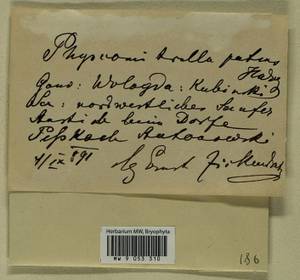 Physcomitrella patens
Hedw
Gouv: Wologda: Kubinski
See: nordwestliches Seeufer
beim Dorfe
Pesskach Antonowski
4/IX 891
lg Ernst
Herbarium MW, Bryophyta
MW 9 053 510
186